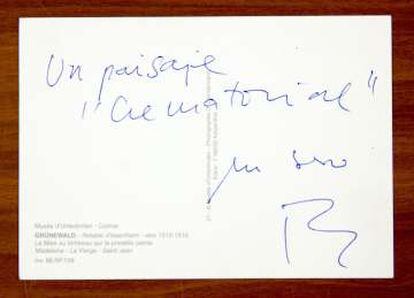 Un paisaje
"Crematorial"
un beso
Musée d'Unterlinden - Colmar
GRÜNEWALD - Retable d'Issenheim - vers 1512-1516
La Mise au tombeau sur la prédelle peinte
Madeleine - La Vierge - Saint Jean